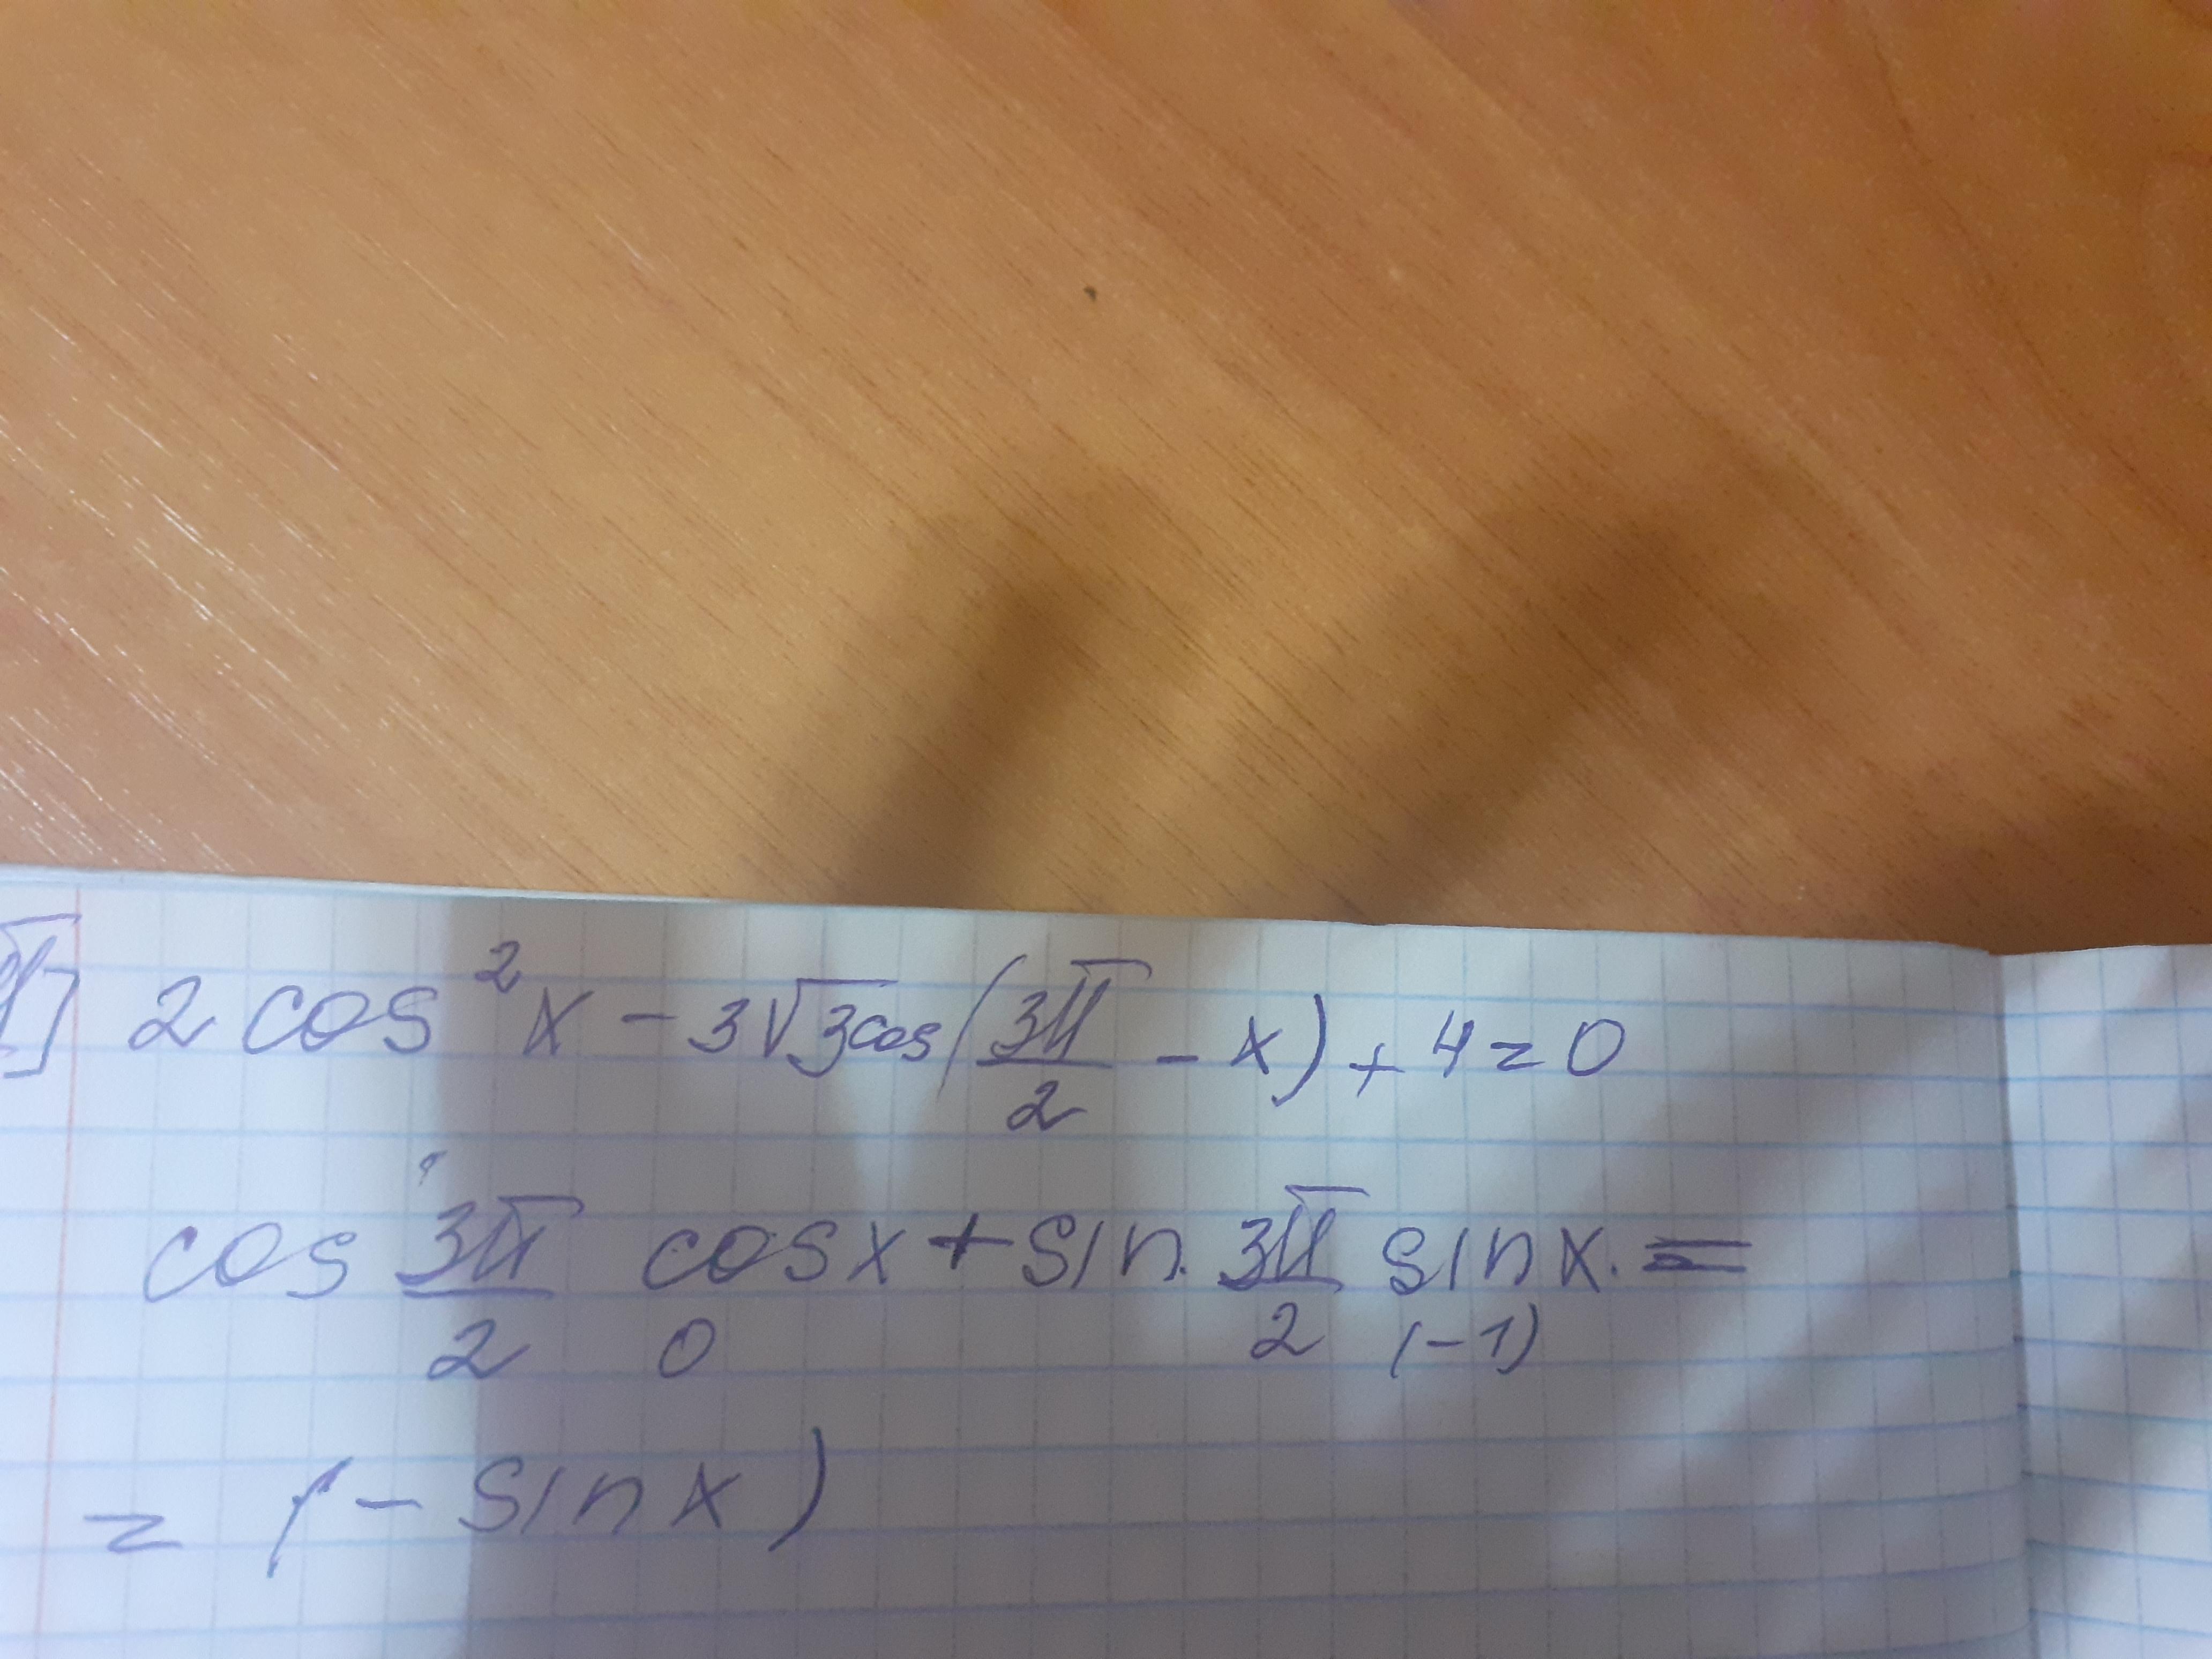 2 cos²x - 3√3cos(3π/2 - x) + 4 = 0
cos 3π/2 cosx + sin 3π/2 sinx =
0 (-1)
= (- sinx)